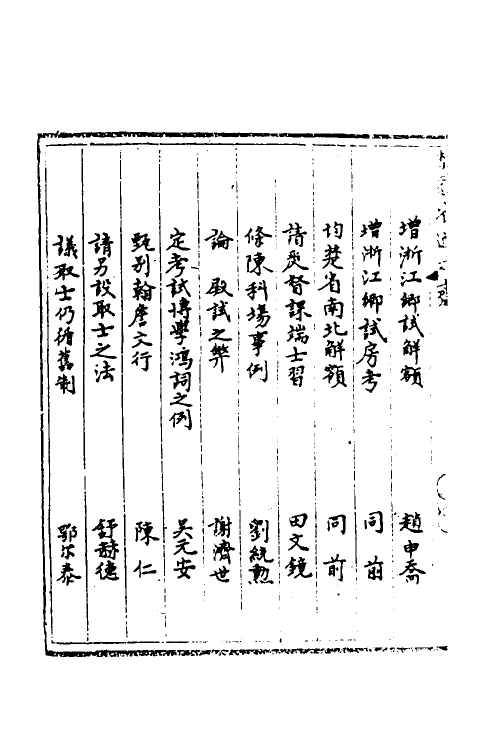 增浙江鄉試解額　趙申喬
增浙江鄉試房考　同前
均楚省南北解額　同前
請䢖督課端士習　田文鏡
條陳科場事例　劉統勲
論　殿試之弊　謝濟世
定考試博學鴻詞之例　吳元安
甄别翰詹文行　陳仁
請另設取士之法　舒赫德
議取士仍循舊制　鄂尔泰